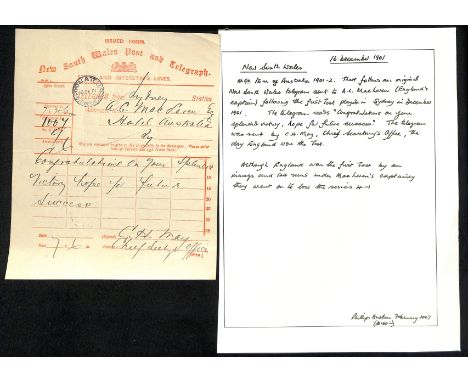 ISSUED FORM.
New South Wales Post and Telegraph.
AND INTERSTATE LINES.
from Sydney Station,
A. C. MacLaren Esq
Hotel Australia
Congratulations on your splendid
Victory hope for future
success
C. H. May
Chief Secty's Office
16 December 1901
New South Wales
original
New South Wales telegram sent to A.C. MacLaren (England's
captain) following the first Test played in Sydney in December
1901. The telegram reads "Congratulations on your
splendid victory, hope for future success". The telegram
was sent by C.H. May, Chief Secretary's Office, the
day England won the Test.
Although England won the first Test by an
innings and 124 runs under MacLaren's captaincy
they went on to lose the series 4-1
Phillips Auction February 2007